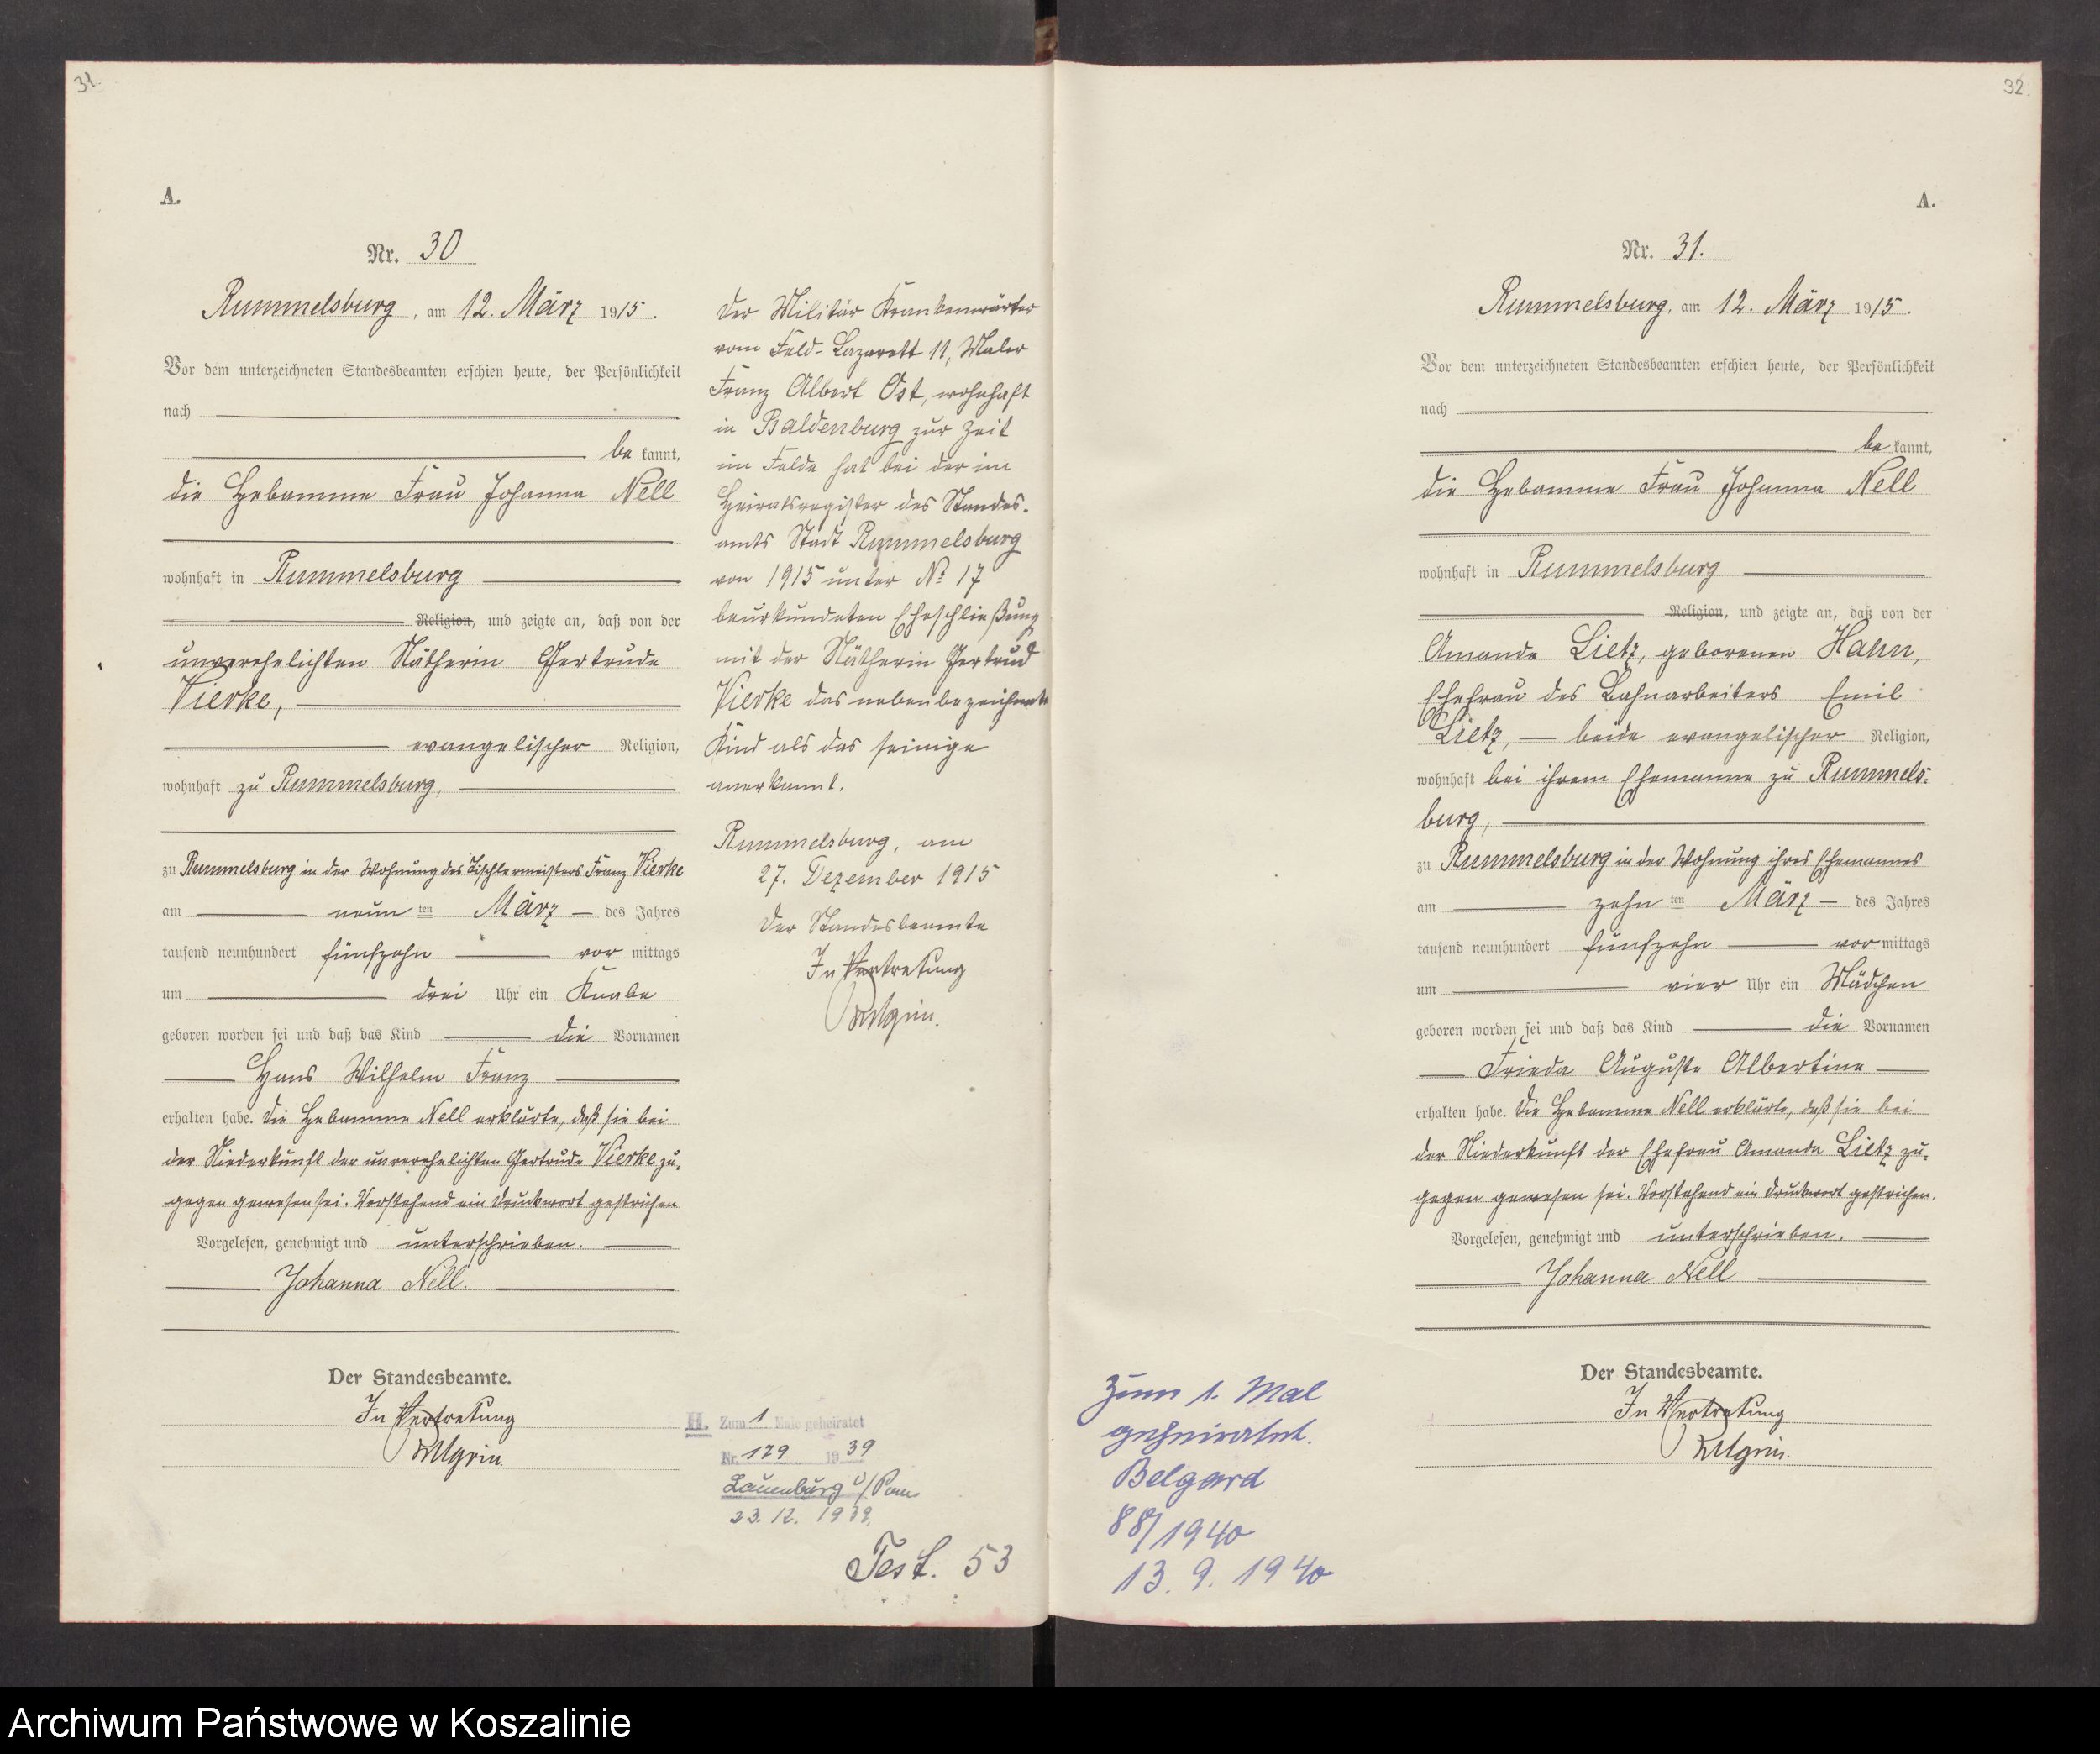 31.
A.
Nr. 30
Rummelsburg, am 12. März 1915.
Vor dem unterzeichneten Standesbeamten erschien heute, der Persönlichkeit
nach
be kannt,
die Hebamme Frau Johanna Nell
wohnhaft in Rummelsburg
Religion, und zeigte an, daß von der
unverehelichten Nätherin Gertrude
Vierke,
evangelischer Religion,
wohnhaft zu Rummelsburg,
zu Rummelsburg in der Wohnung des Tischlermeisters Franz Vierke
am neun ten März des Jahres
tausend neunhundert fünfzehn vor mittags
um drei Uhr ein Knabe
geboren worden sei und daß das Kind die Vornamen
Hans Wilhelm Franz
erhalten habe. Die Hebamme Nell erklärte, daß sie bei
der Niederkunft der unverehelichten Gertrude Vierke zu-
gegen gewesen sei. Vorstehend ein Druckwort gestrichen
Vorgelesen, genehmigt und unterschrieben.
Johanna Nell.
Der Standesbeamte.
In Vertretung
Der Militär Krankenwärter
vom Feld-Lazarett 11, Maler
Franz Albert Ost, wohnhaft
in Baldenburg zur Zeit
im Felde hat bei der im
Heiratsregister des Standes-
amts Stadt Rummelsburg
von 1915 unter No 17
beurkundeten Eheschließung
mit der Nätherin Gertrud
Vierke das nebenbezeichnete
Kind als das seinige
anerkannt.
Rummelsburg, am
27. Dezember 1915
Der Standesbeamte
In Vertretung
H. Zum 1 Male geheiratet
Nr. 179 1939
Lauenburg i/Pom.
23. 12. 1939.
Test. 53
32.
A.
Nr. 31.
Rummelsburg, am 12. März 1915.
Vor dem unterzeichneten Standesbeamten erschien heute, der Persönlichkeit
nach
be kannt,
die Hebamme Frau Johanna Nell
wohnhaft in Rummelsburg
Religion, und zeigte an, daß von der
Amanda Lietz, geborenen Hahn,
Ehefrau des Bahnarbeiters Emil
Lietz, beide evangelischer Religion,
wohnhaft bei ihrem Ehemanne zu Rummels-
burg,
zu Rummelsburg in der Wohnung ihres Ehemannes
am zehn ten März des Jahres
tausend neunhundert fünfzehn vor mittags
um vier Uhr ein Mädchen
geboren worden sei und daß das Kind die Vornamen
Frieda Auguste Albertine
erhalten habe. Die Hebamme Nell erklärte, daß sie bei
der Niederkunft der Ehefrau Amanda Lietz zu-
gegen gewesen sei. Vorstehend ein Druckwort gestrichen.
Vorgelesen, genehmigt und unterschrieben.
Johanna Nell
Der Standesbeamte.
In Vertretung
Zum 1. Mal
geheiratet.
Belgard
88/1940
13. 9. 1940
Archiwum Państwowe w Koszalinie